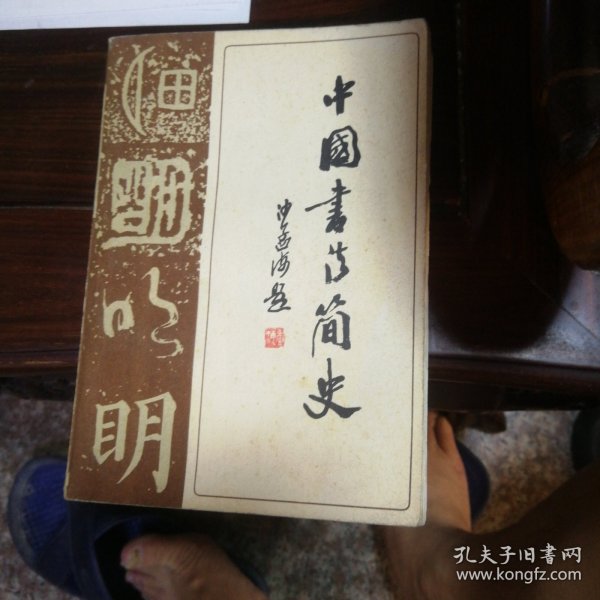 中國書法简史
沙孟海题
明
明
孔夫子旧书网
www.kongfz.com